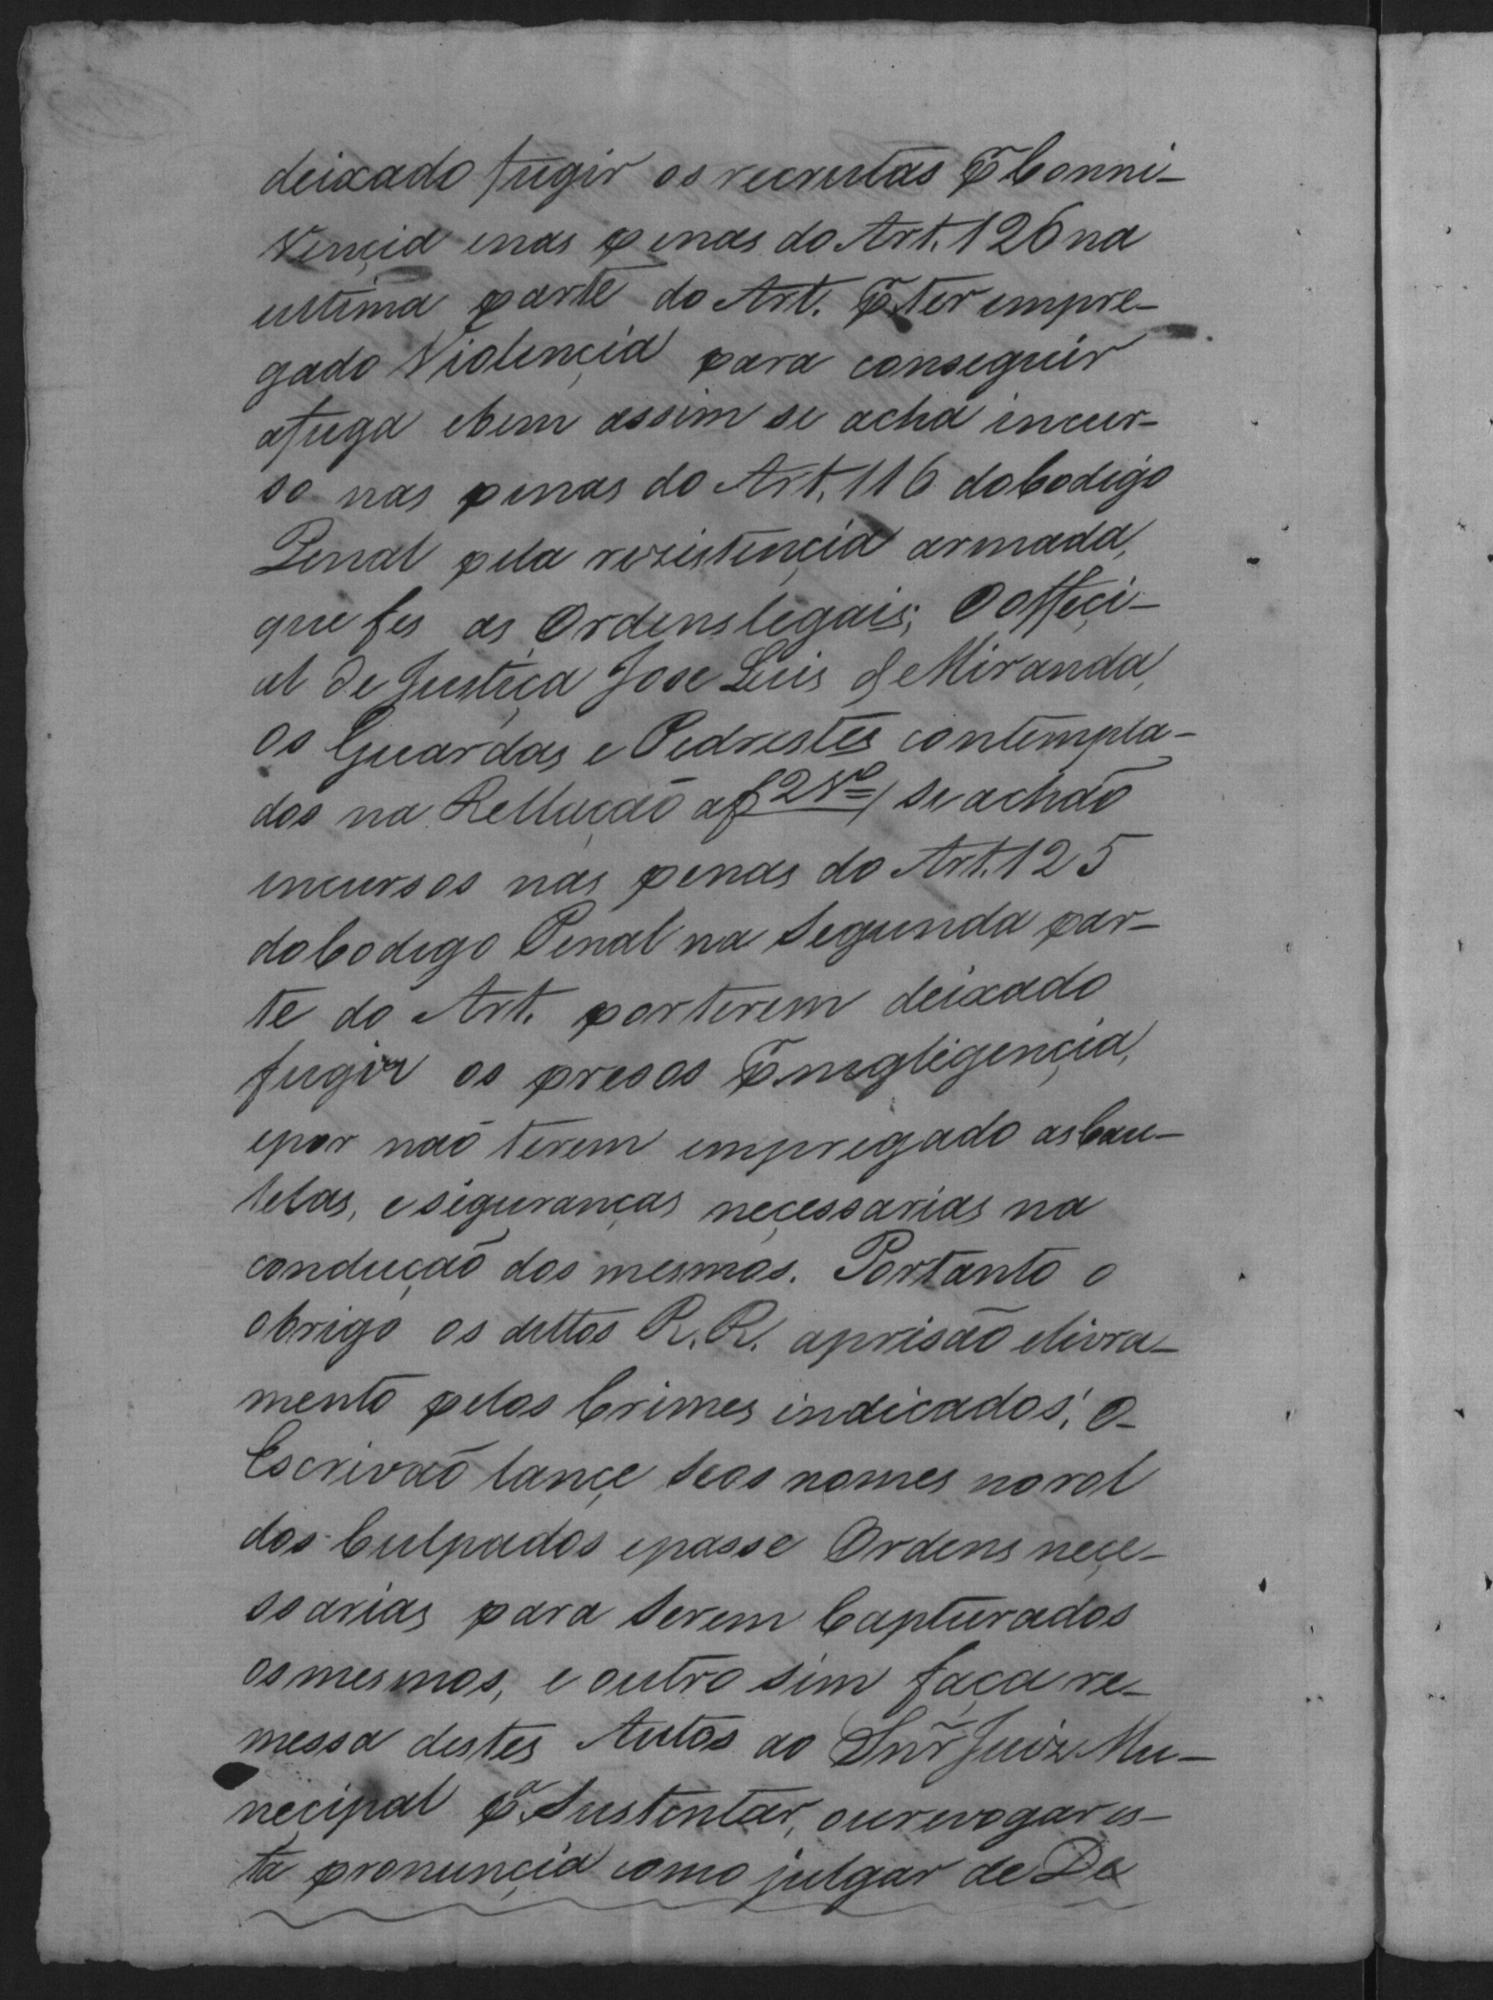 deixado fugir os recrutas pr Conni-
vençia enas penas do Art. 126 na
ultima parte do Art. pr ter empre-
gado Violençia para conseguir
afuga ebem assim se acha incur-
so nas penas do Art. 116 do Codigo
Penal pela rezistençia armada,
que fes as Ordens legais; O offeçi-
al de Justiça Jose Luis de Miranda,
os Guardas e Pedrestes contempla-
dos na Rellação af 2 vo se achão
incursos nas penas do Art. 125
do Codigo Penal na Segunda par-
te do Art. por terem deixado
fugir os presos pr negligençia,
epor não terem empregado as Cau-
telas, e siguranças neçessarias na
condução dos mesmos. Portanto o
obrigo os dittos R.R. aprisão elivra-
mento pelos Crimes indicados; O
Escrivão lançe seos nomes no rol
dos Culpados epasse Ordens neçe-
ssarias para Serem Capturados
os mesmos, e outro sim faça re-
messa destes Autos ao Snr Juiz Mu-
neçipal pa Sustentar, ou revogar es-
ta pronunçia como julgar de De